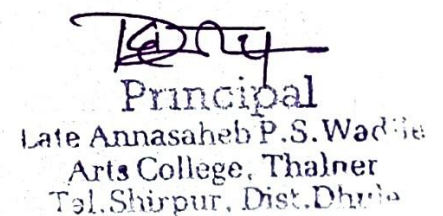 Principal
Late Annasaheb P.S.
Arts College, Thalner
Tal.Shirpur, Dist.Dhule